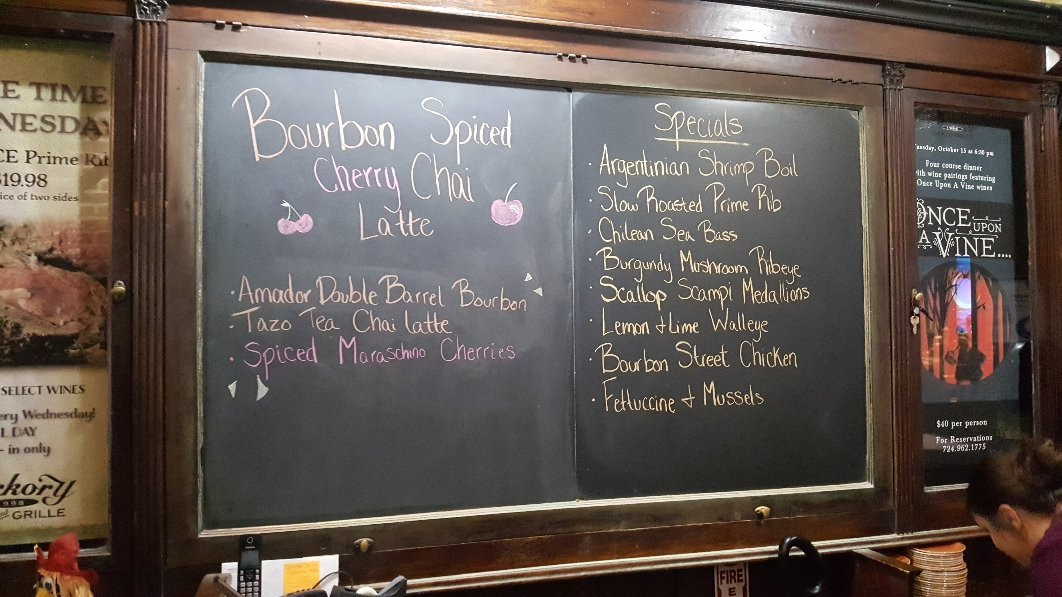 E TIME
NESDAY
CE Prime Rib
$19.98
ice of two sides
SELECT WINES
ery Wednesday!
L DAY
- in only
kory
1998
GRILLE
Bourbon Spiced
Cherry Chai
Latte
· Amador Double Barrel Bourbon
· Tazo Tea Chai latte
· Spiced Maraschino Cherries
Specials
· Argentinian Shrimp Boil
· Slow Roasted Prime Rib
· Chilean Sea Bass
· Burgundy Mushroom Ribeye
· Scallop Scampi Medallions
· Lemon & Lime Walleye
· Bourbon Street Chicken
· Fettuccine & Mussels
uesday, October 15 at 6:30 pm
Four course dinner
with wine pairings featuring
Once Upon A Vine wines
ONCE UPON
A VINE....
$40 per person
For Reservations
724.962.1775
FIRE
E